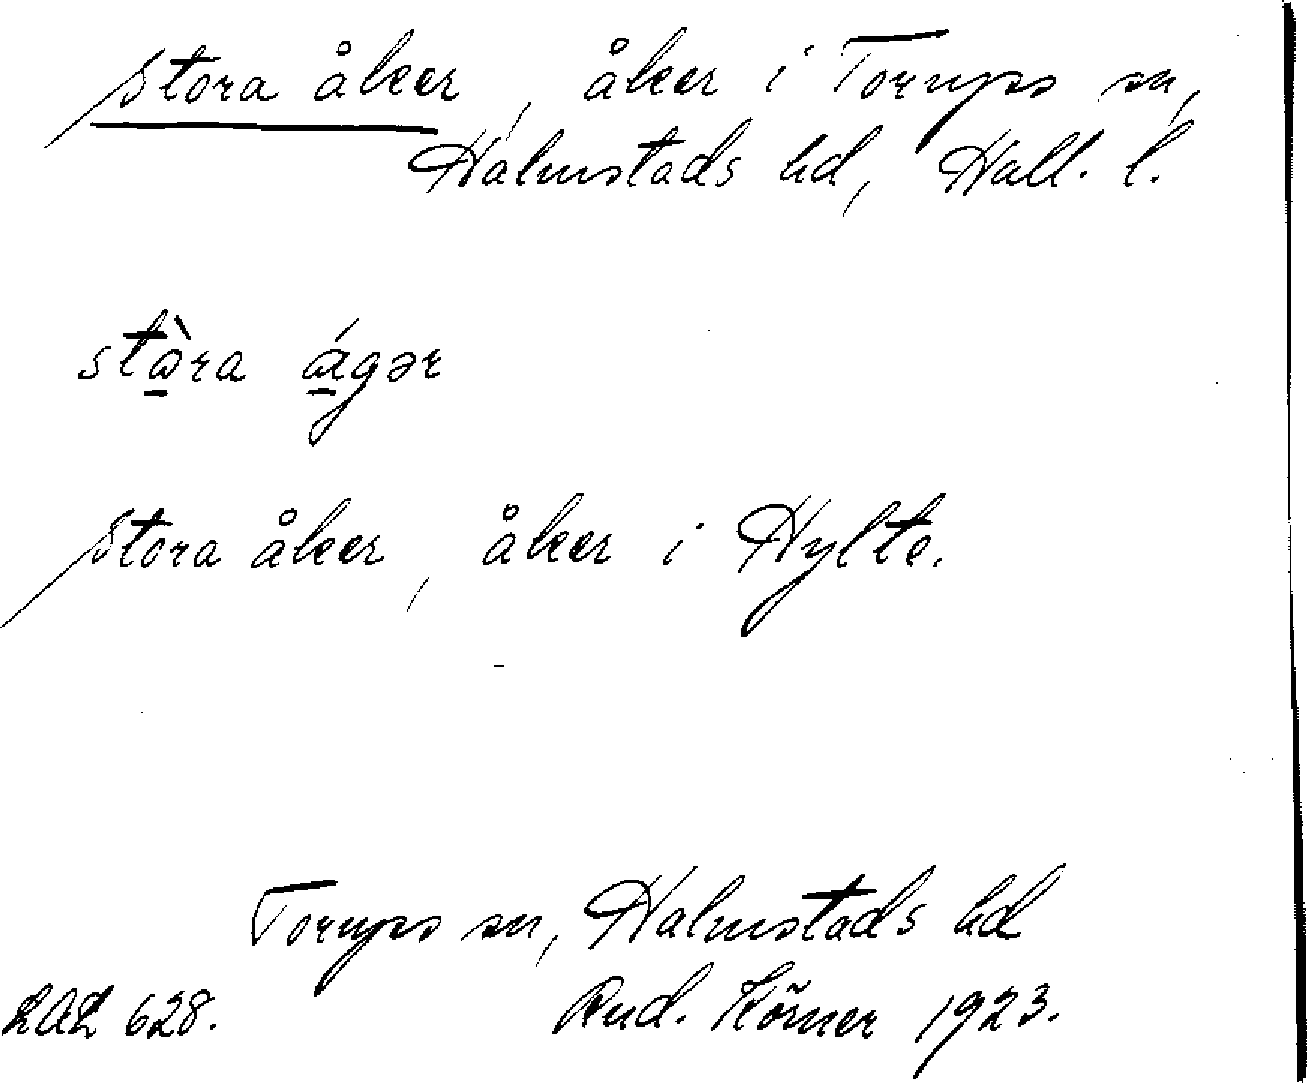 Stora åker, åker i Torups sn,
Halmstads hd, Hall. l.
stɷ̀ra ǽgər
Stora åker, åker i Hylte.
Torups sn, Halmstads hd
LAL 628. Rud. Körner 1923.